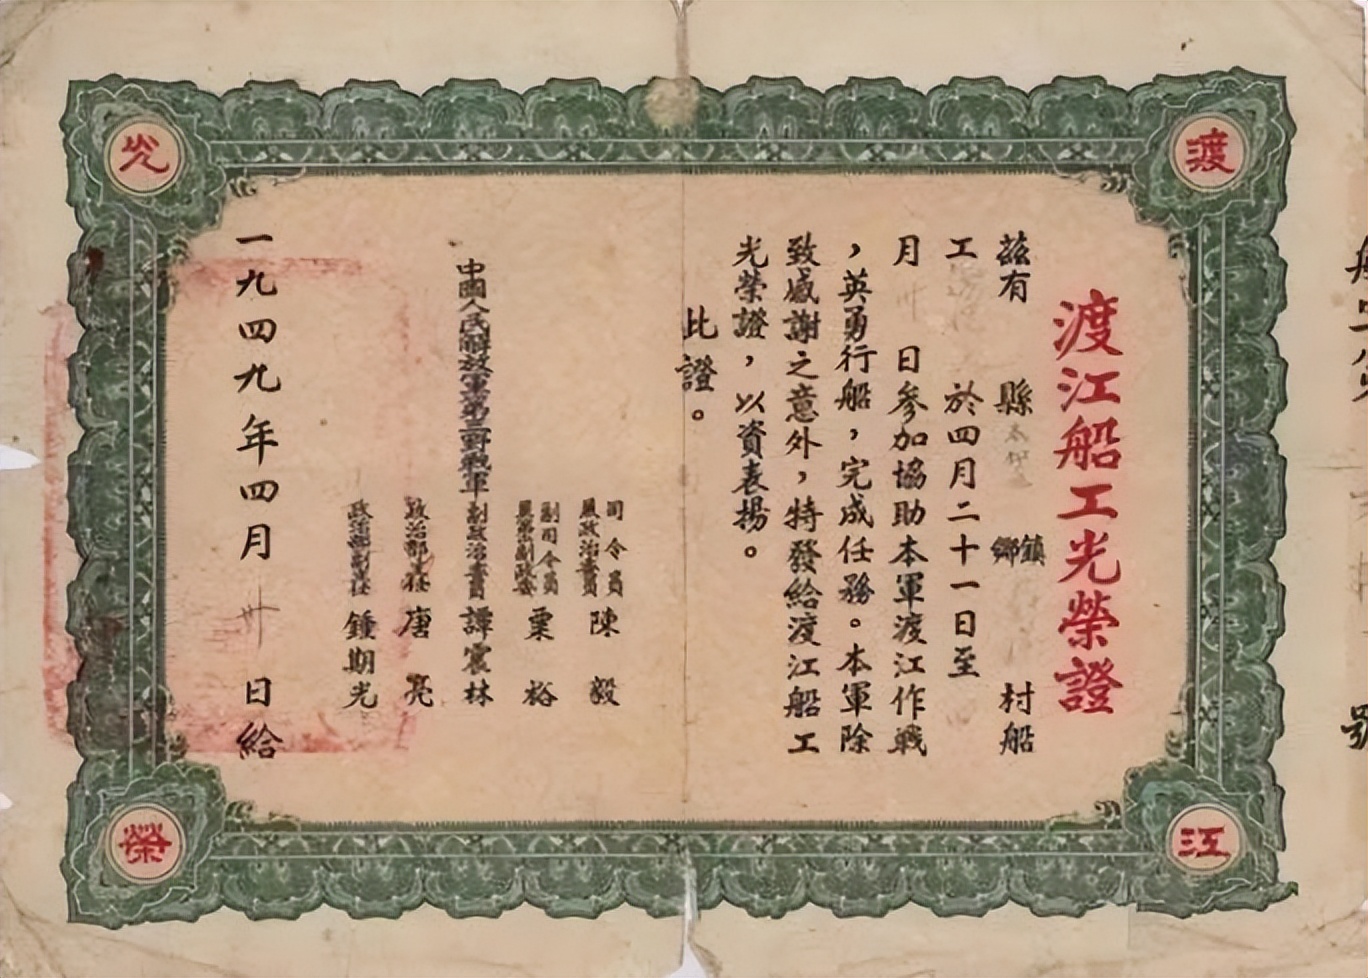 渡江船工光榮證
茲有 縣 鎮鄉 村船
工 於四月二十一日至
月卅日參加協助本軍渡江作戰
，英勇行船，完成任務。本軍除
致感謝之意外，特發給渡江船工
光榮證，以資表揚。
此證。
司令員兼政治委員 陳毅
副司令員兼第二副政委 粟裕
中國人民解放軍第三野戰軍副政治委員 譚震林
政治部主任 唐亮
政治部副主任 鍾期光
一九四九年四月卅日給
渡
江
光
榮
號